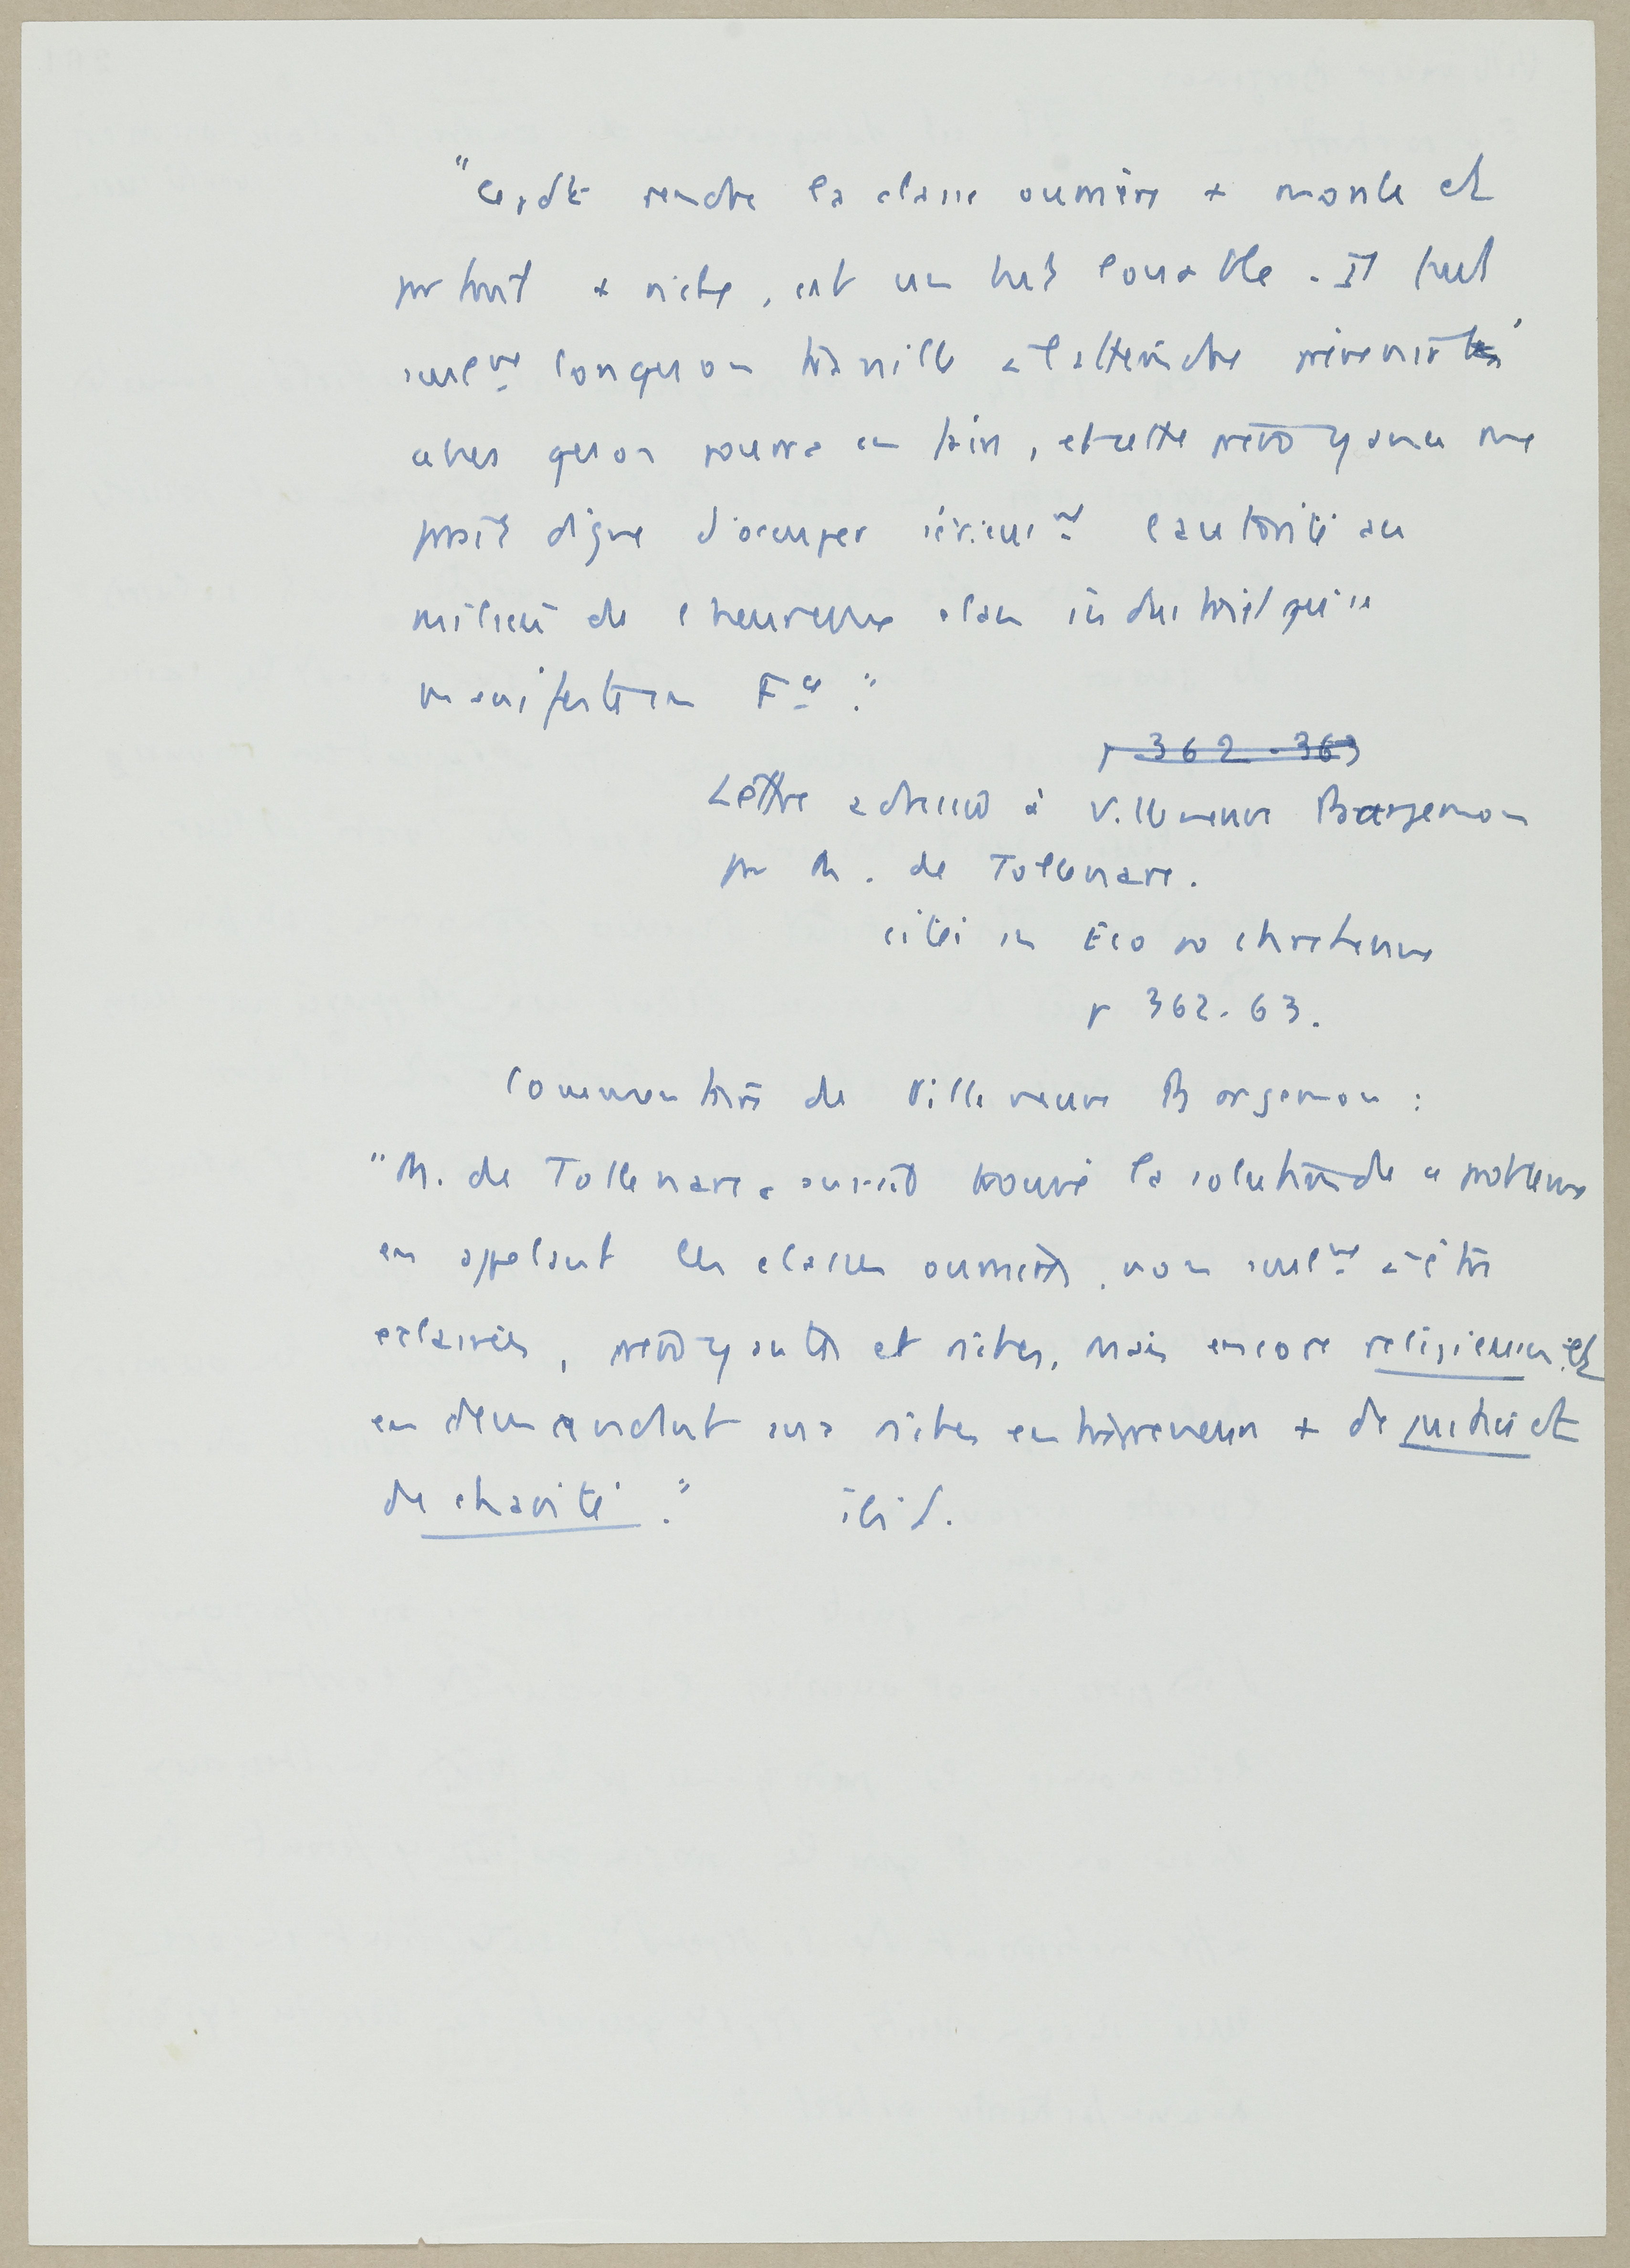 "Certes rendre la classe ouvrière + morale et
partant + riche, est un but louable. Il faut
seulᵐᵗ lorsqu'on travaille à l'atteindre prévenir les
abus qu'on pourra en faire, et cette prévoyance me
paraît digne d'occuper sérieusᵐᵗ l'autorité au
milieu de l'heureux élan industriel qui se
manifeste en Fᶜᵉ."
p 362-363
Lettre adressée à Villeneuve Bargemon
par M. de Tollenare.
citée in Eco po chretienne
p 362-63.
Commentaire de Villeneuve Bargemon :
"M. de Tollenare aurait trouvé la solution de ce problème
en appelant les classes ouvrières, non seulᵐᵗ à être
éclairées, prévoyantes et riches, mais encore religieuses et
en demandant aux riches entrepreneurs + de justice et
de charité." ibid.